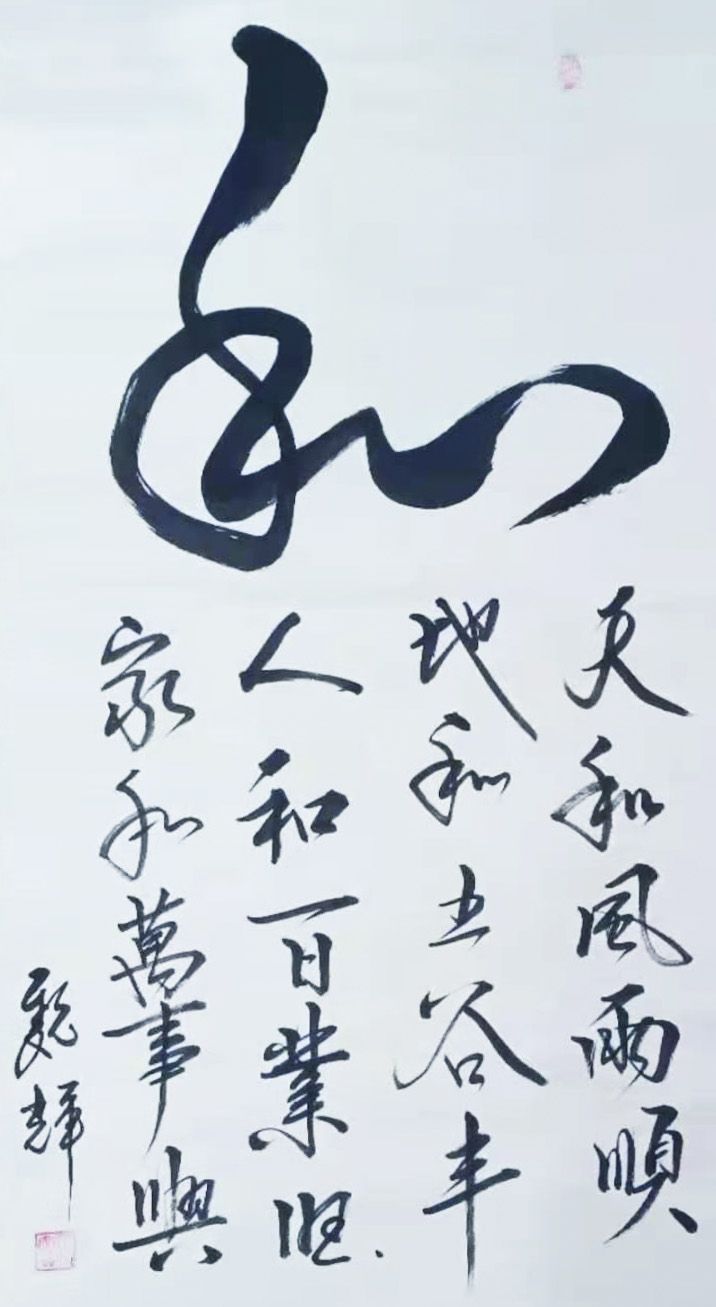 和
天和風雨順
地和五谷丰
人和百業旺
家和萬事興
輝